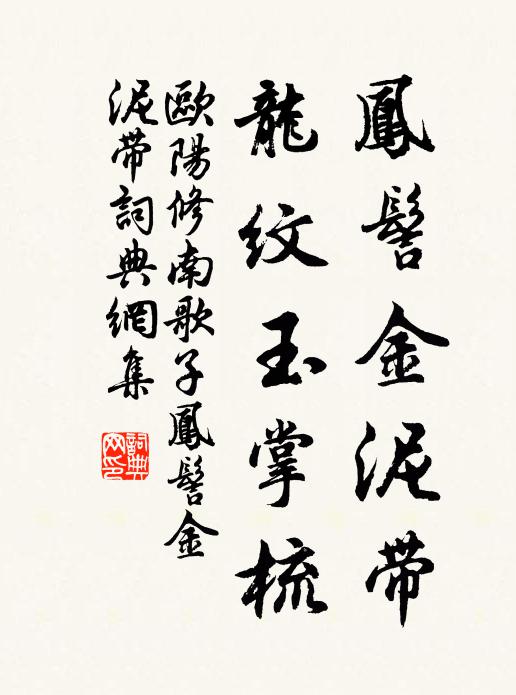 鳳髻金泥帶
龍紋玉掌梳
歐陽修南歌子鳳髻金
泥帶詞典網集
詞典网印